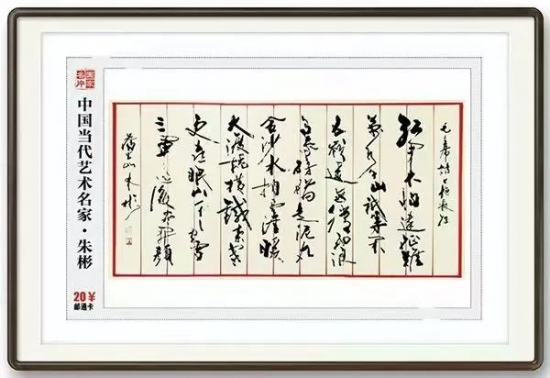 中国当代艺术名家·朱彬
20¥
邮通卡
毛主席诗七律长征
红军不怕远征难
万水千山只等闲
五岭逶迤腾细浪
乌蒙磅礴走泥丸
金沙水拍云崖暖
大渡桥横铁索寒
更喜岷山千里雪
三军过后尽开颜
朱彬